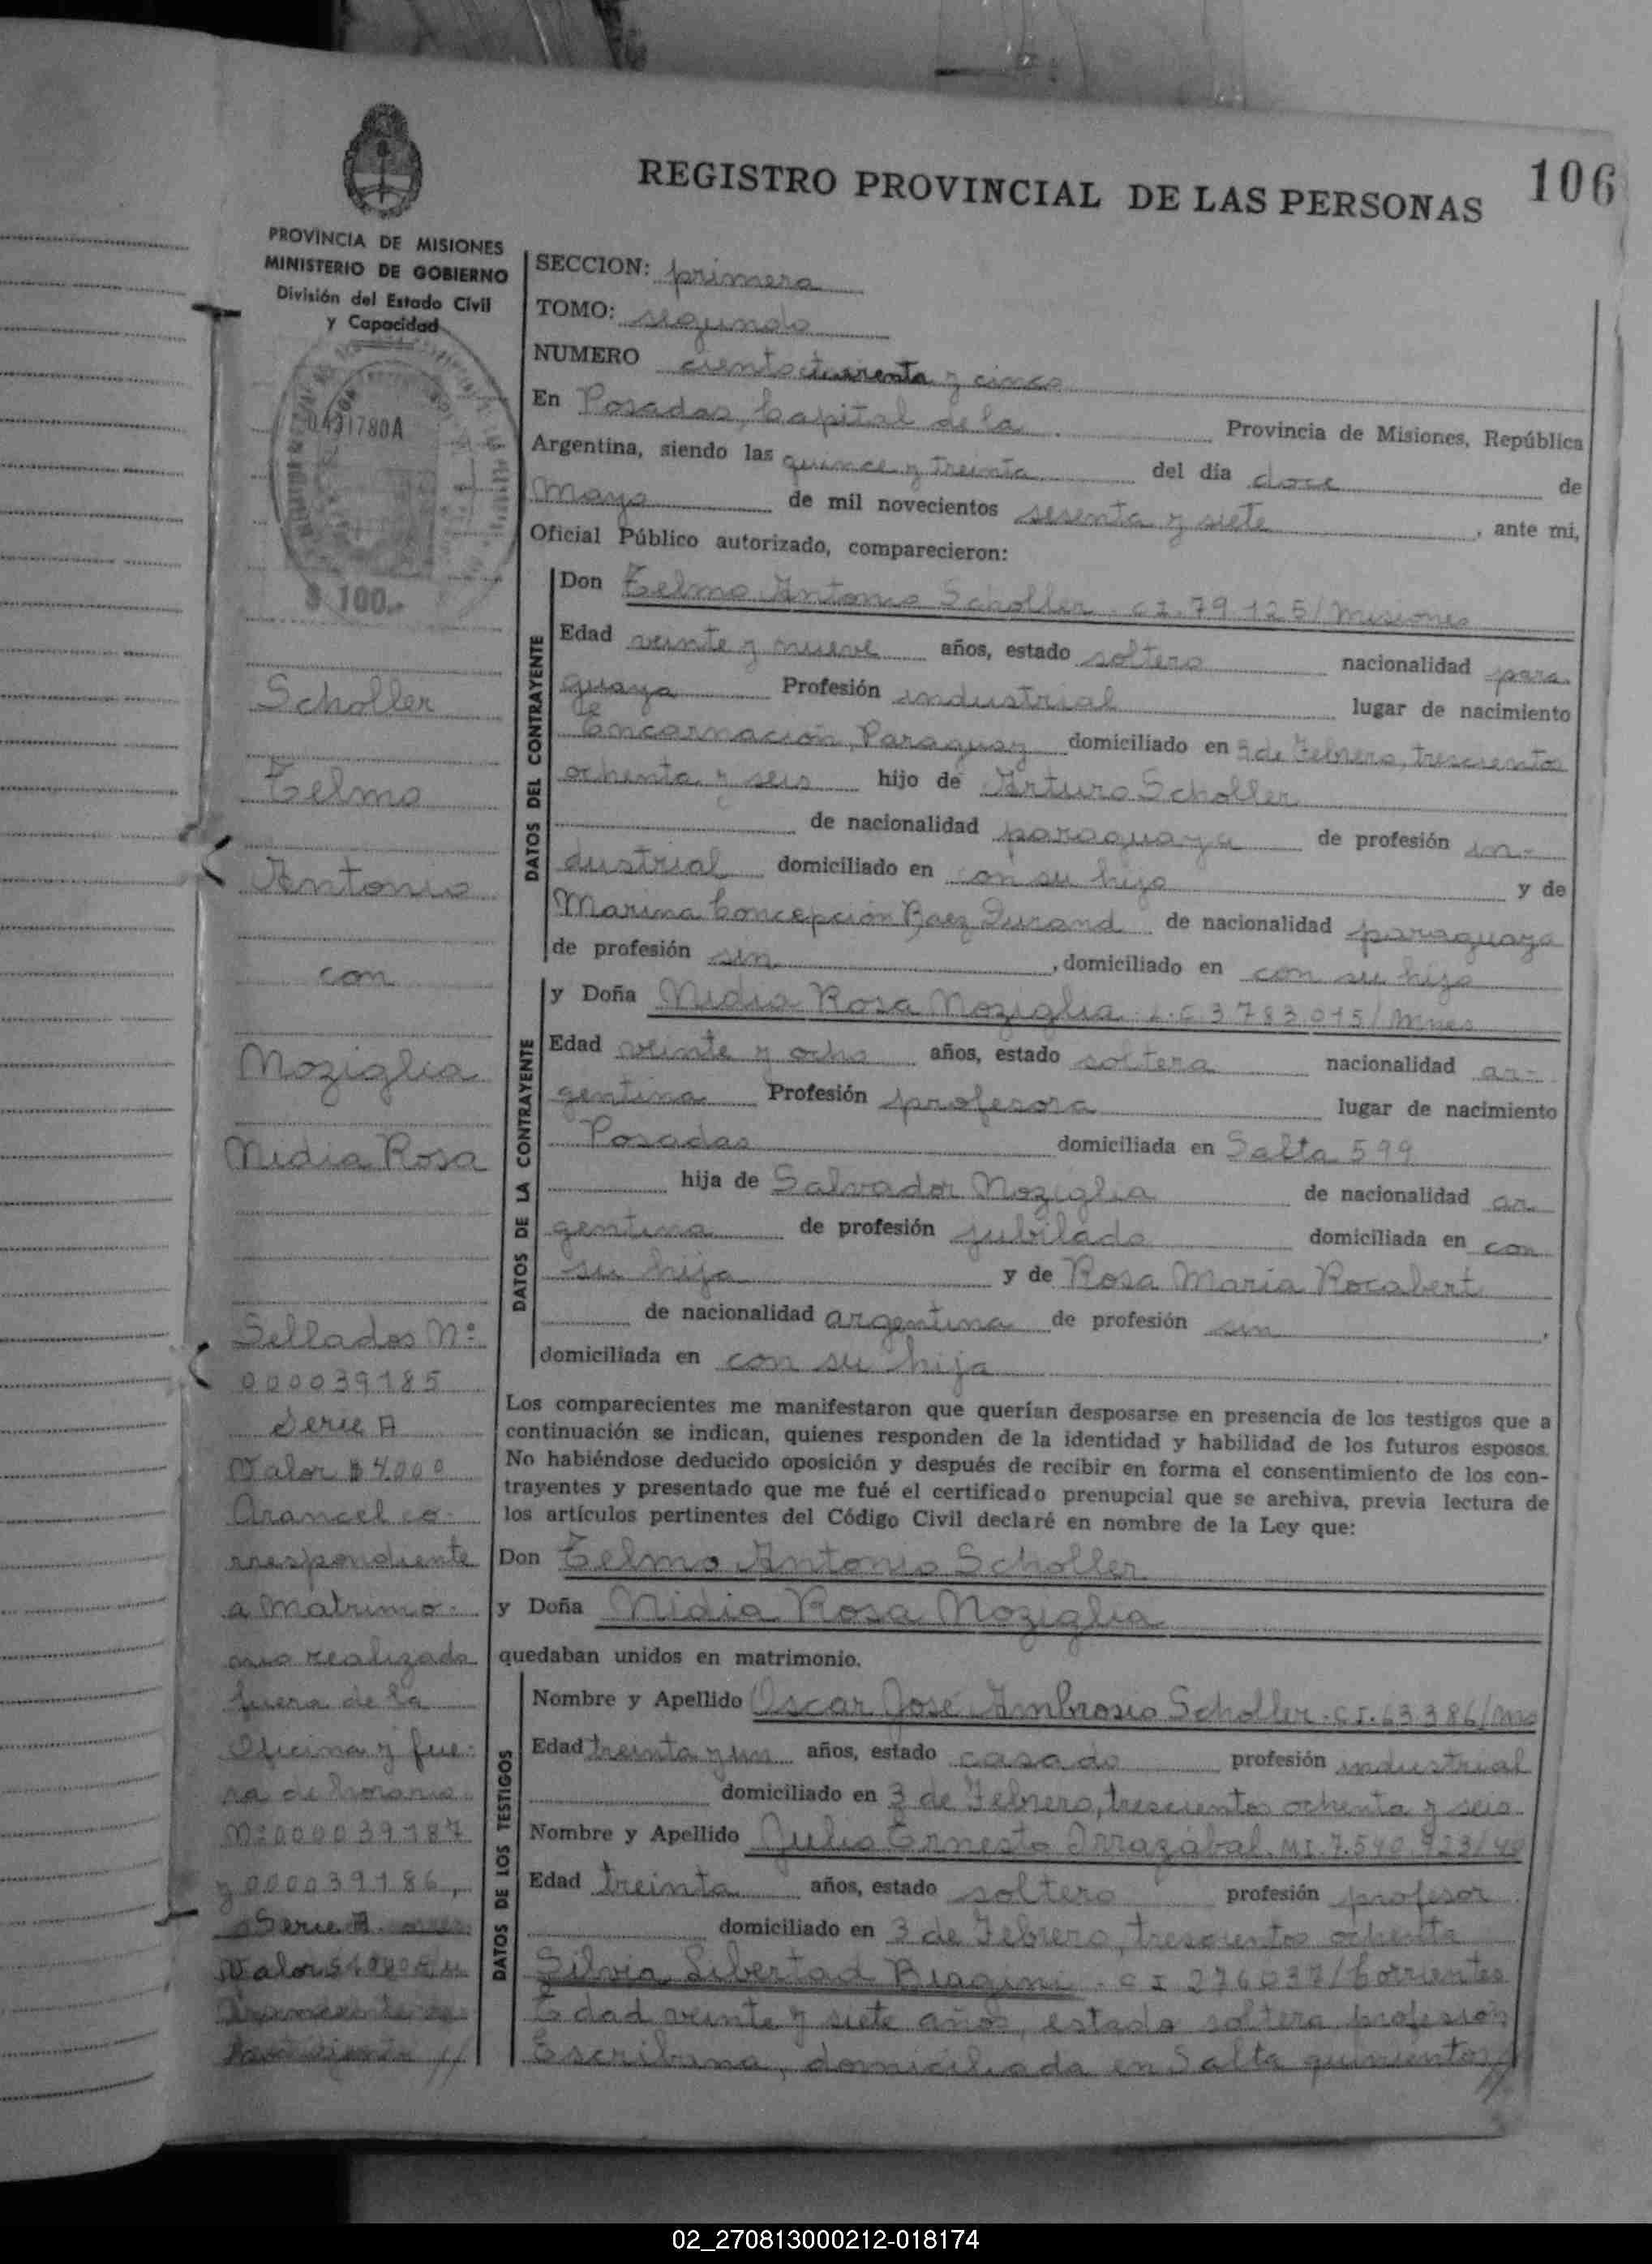 REGISTRO PROVINCIAL DE LAS PERSONAS
106
PROVINCIA DE MISIONES
MINISTERIO DE GOBIERNO
División del Estado Civil
y Capacidad
0431780A
$ 100.-
Scholler
Telmo
Antonio
con
Noziglia
Nidia Rosa
Sellados Nº
000039185
Serie A
Valor $ 4.000
Arancel co-
rrespondiente
a matrimo-
nio realizado
fuera de la
Oficina y fue-
ra de horario
Nº 000039187
y 000039186,
Serie A
Valor
SECCION: primera
TOMO: segundo
NUMERO ciento cuarenta y cinco
En Posadas, Capital de la Provincia de Misiones, República
Argentina, siendo las quince y treinta del día doce de
Mayo de mil novecientos sesenta y siete, ante mi,
Oficial Público autorizado, comparecieron:
DATOS DEL CONTRAYENTE
Don Telmo Antonio Scholler. C I. 79.125/Misiones
Edad veinte y nueve años, estado soltero nacionalidad para-
guaya Profesión industrial lugar de nacimiento
Encarnación, Paraguay domiciliado en 3 de Febrero, trescientos
ochenta y seis hijo de Arturo Scholler
de nacionalidad paraguaya de profesión in-
dustrial domiciliado en con su hijo y de
Marina Concepción Baez Durand de nacionalidad paraguaya
de profesión sin, domiciliado en con su hijo
DATOS DE LA CONTRAYENTE
y Doña Nidia Rosa Noziglia. L.C. 3.783.015/Mnes
Edad veinte y ocho años, estado soltera nacionalidad ar-
gentina Profesión profesora lugar de nacimiento
Posadas domiciliada en Salta 599
hija de Salvador Noziglia de nacionalidad ar
gentina de profesión jubilado domiciliada en con
su hija y de Rosa María Rocabert
de nacionalidad argentina de profesión sin,
domiciliada en con su hija
Los comparecientes me manifestaron que querían desposarse en presencia de los testigos que a
continuación se indican, quienes responden de la identidad y habilidad de los futuros esposos.
No habiéndose deducido oposición y después de recibir en forma el consentimiento de los con-
trayentes y presentado que me fué el certificado prenupcial que se archiva, previa lectura de
los artículos pertinentes del Código Civil declaré en nombre de la Ley que:
Don Telmo Antonio Scholler
y Doña Nidia Rosa Noziglia
quedaban unidos en matrimonio.
DATOS DE LOS TESTIGOS
Nombre y Apellido Oscar José Ambrosio Scholler. C I. 63386/Ms
Edad treinta y un años, estado casado profesión industrial
domiciliado en 3 de Febrero, trescientos ochenta y seis
Nombre y Apellido Julio Ernesto Irrazábal. M I. 7.540.923/40
Edad treinta años, estado soltero profesión profesor
domiciliado en 3 de Febrero, trescientos ochenta
Silvia Libertad Biagini. C I 276037/Corrientes
Edad veinte y siete años, estado soltera profesión
Escribana, domiciliada en Salta quinientos //
02_270813000212-018174